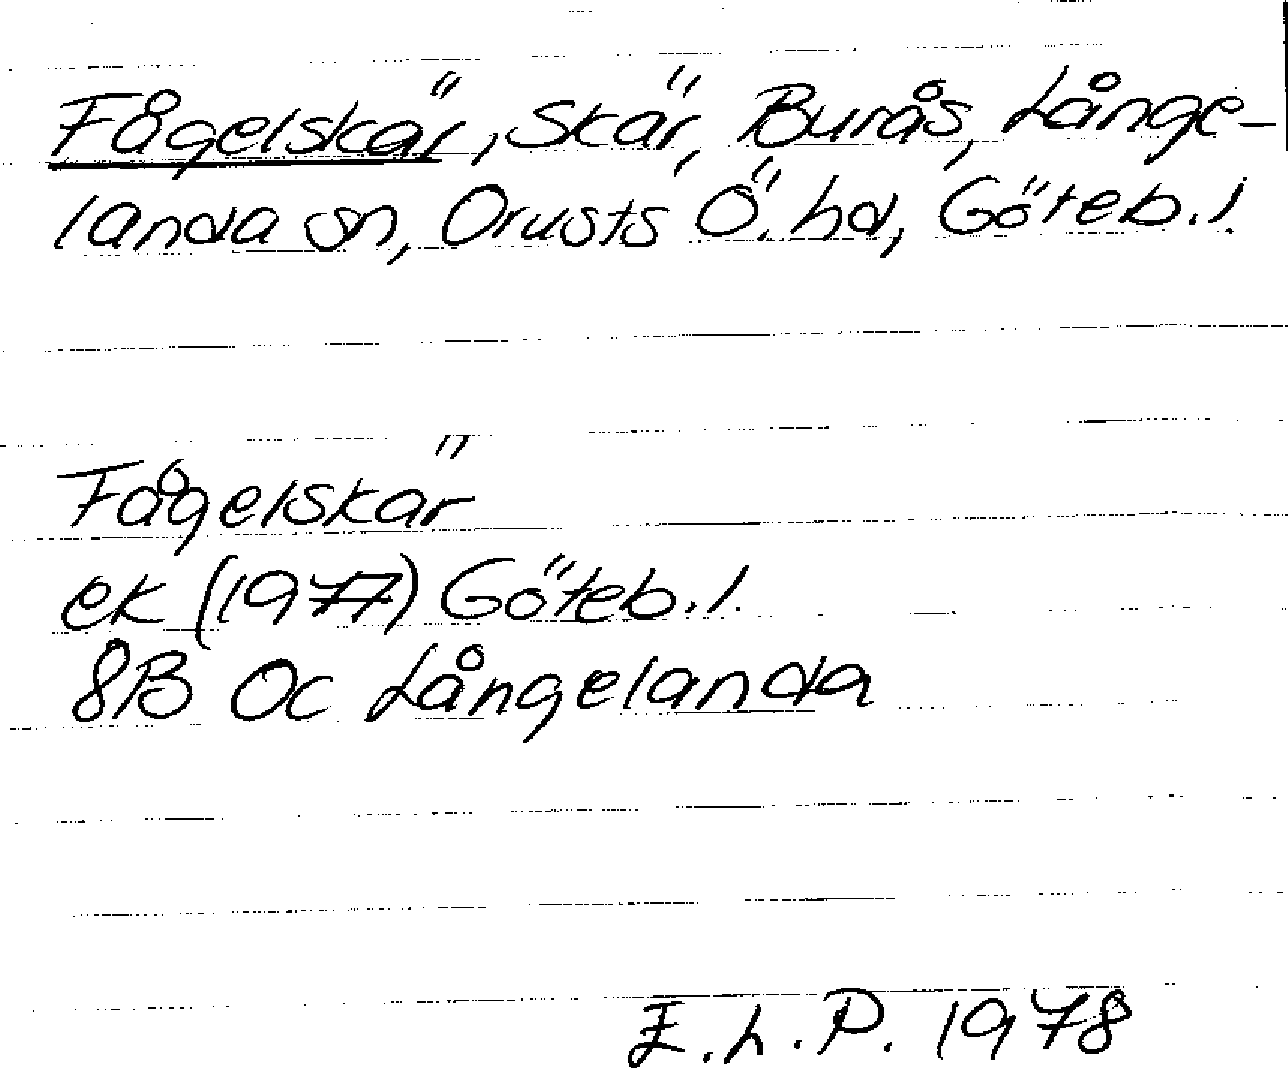 Fågelskär, skär, Burås, Långe-
landa sn, Orusts Ö. hd, Göteb.l.
Fågelskär
ek (1977) Göteb.l.
8B 0c Långelanda
E.L.P. 1978